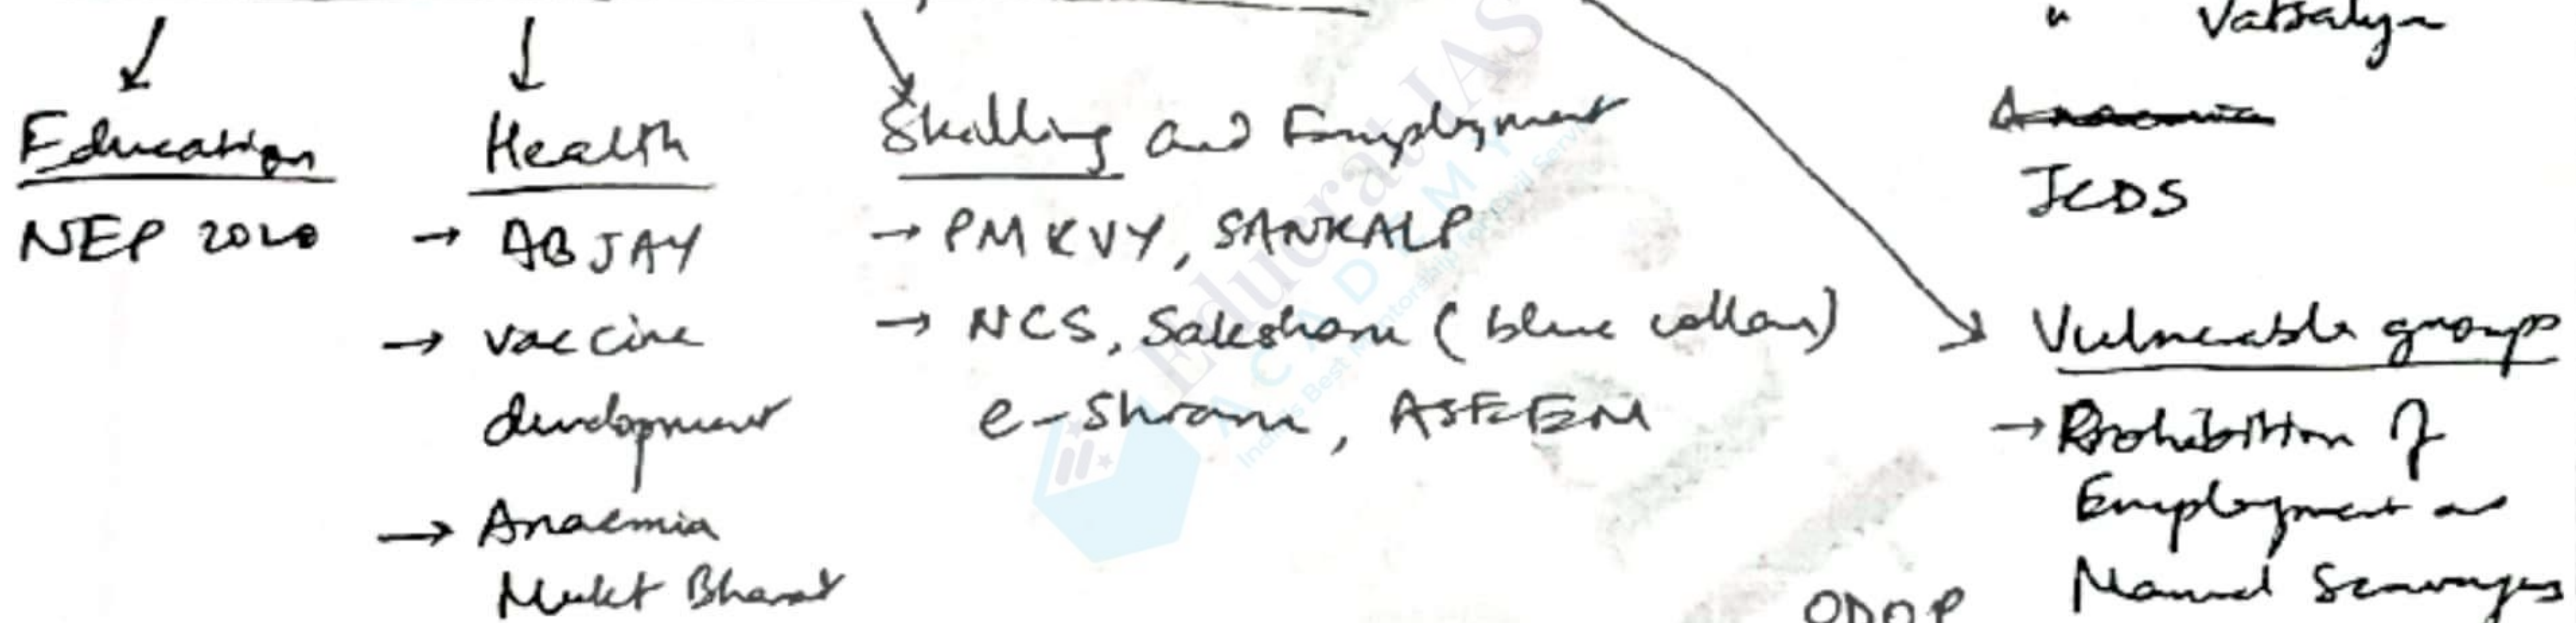 " Vatsalya
Anaemia
ICDS
Education
NEP 2020
Health
→ AB JAY
→ vaccine
development
→ Anaemia
Mukt Bharat
Skilling and Employment
→ PMKVY, SANKALP
→ NCS, Saksham (blue collar)
e-Shram, ASEEM
Vulnerable groups
→ Prohibition of
Employment as
Manual Scavengers
ODOP
Educrat IAS
ACADEMY
India's Best Mentorship for Civil Services